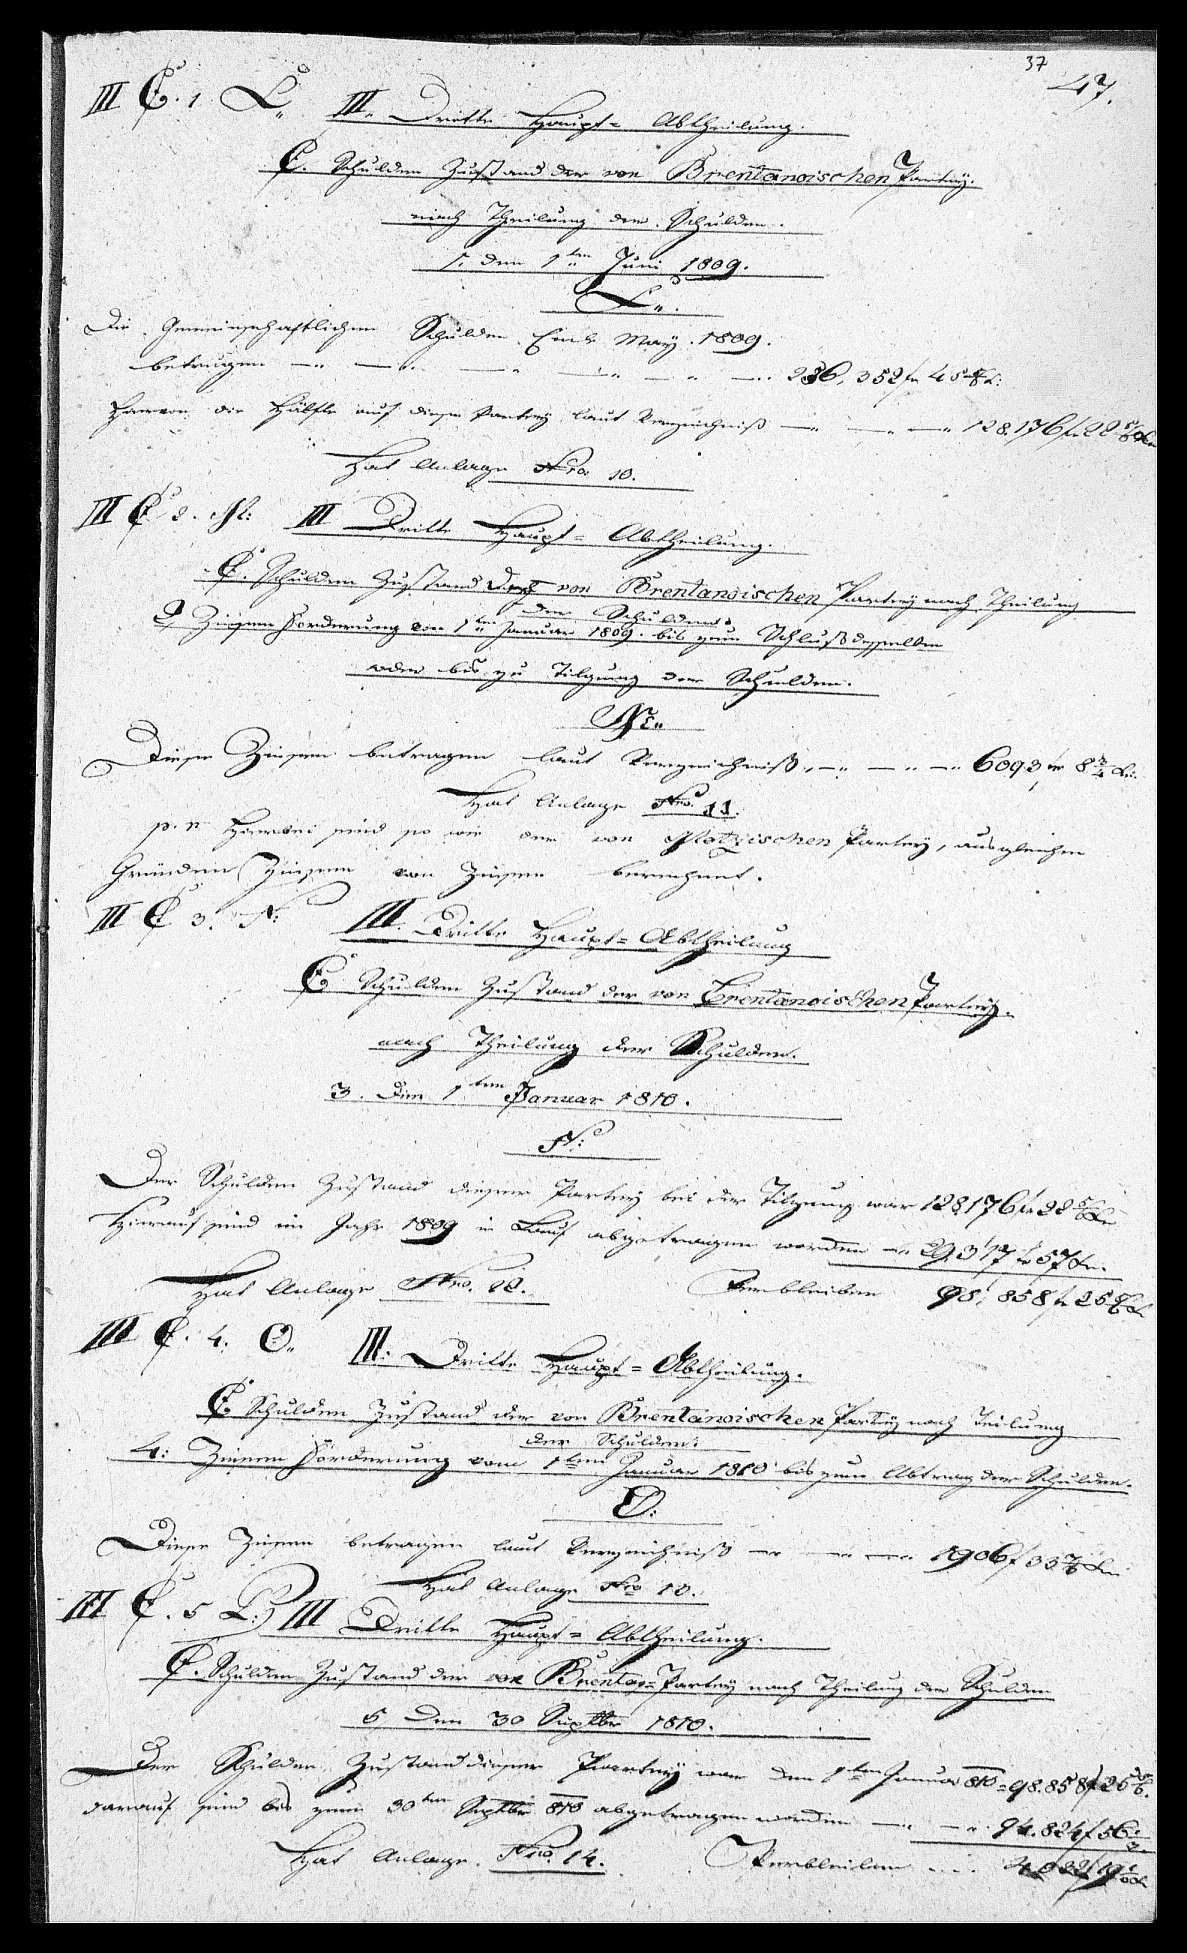 37
47.
III C. 1 L. III. Dritte Haupt= Abtheilung.
C. Schulden Zustand der von Brentanoischen Partey.
nach Theilung der Schulden.
1. den 1ten Juni 1809.
L.
Die Gemeinschaftlichen Schulden Ende May 1809.
betrugen 256,352 f 45
Hievon die Hälfte auf diese Partey laut Verzeichniß 128,176 f 22
Hat Anlage Nro 10.
III C. 2. M: III Dritte Haupt= Abtheilung.
C. Schulden Zustand der von Brentanoischen Partey nach Theilung
der Schulden.
2 Zinsen Forderung von 1ten Januar 1809. bis zum Schluß desselben
oder bis zu Tilgung der Schulden.
M.
Diese Zinsen betragen laut Verzeichniß 6093 f 8 3/4
Hat Anlage Nro. 11.
Hierbei sind so wie der von Partey, aus gleichen
Gründen Zinsen von Zinsen berechnet.
III C. 3. N: III. Dritte Haupt= Abtheilung
C Schulden Zustand der von Brentanoischen Partey.
nach Theilung der Schulden.
3. Den 1ten Januar 1810.
N:
Der Schulden Zustand dieser Partey bei der Tilgung war 128,176 f 22
Hierauf sind im Jahr 1809 abgetragen worden 29,317 f 57
Hat Anlage Nro. 12. Verbleiben 98,858 f 25
III C. 4. O. III. Dritte Haupt= Abtheilung.
C. Schulden Zustand der von Brentanoischen Partey nach Teilung
der Schulden.
4: Zinsen Forderung vom 1ten Januar 1810 bis zum Abtrag der Schulden.
O:
Diese Zinsen betragen laut Verzeichniß 1906 f
Hat Anlage Nro 13.
III C. 5 P: III Dritte Haupt= Abtheilung.
C. Schulden Zustand der von Brentan= Partey nach Theilung der Schulden
5 Den 30 Septbr 1810.
Der Schulden Zustand dieser Partey war den 1ten Januar 810 = 98.858 f 25
darauf sind bis zum 30ten Septbr 810 abgetragen worden 94.824 f 56
Hat Anlage Nro. 14. Verbleiben